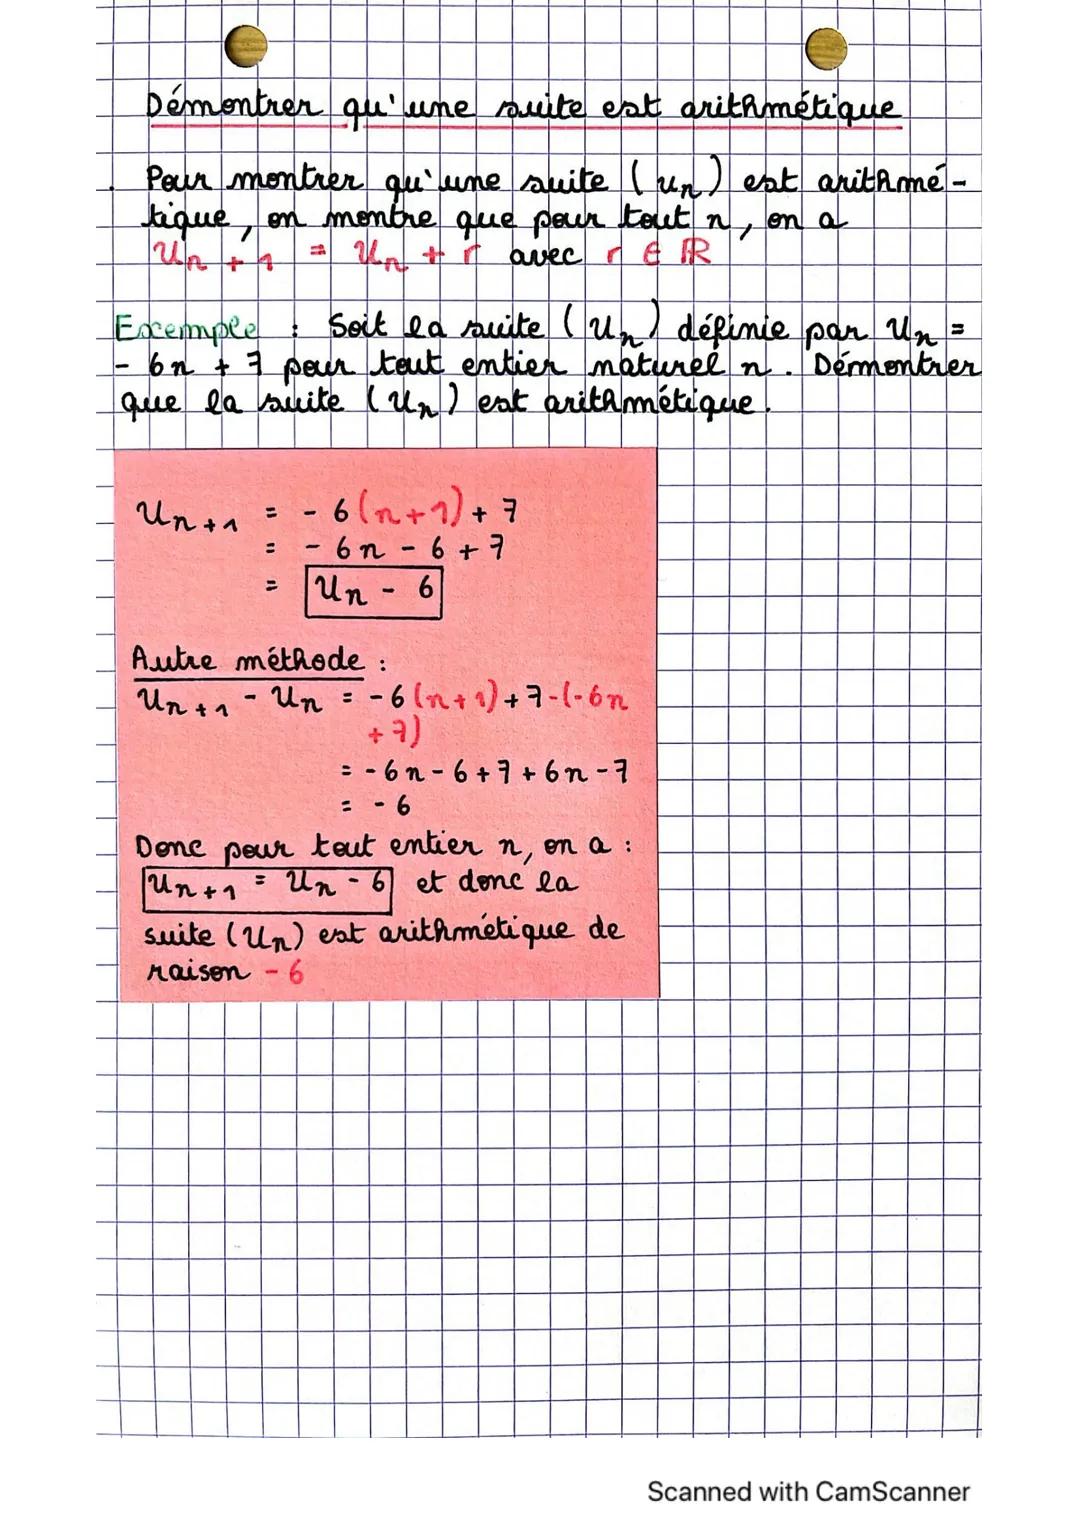 Démontrer qu'une suite est arithmétique
. Pour montrer qu'une suite (un) est arithmé-
tique, on montre que pour tout n, on a
Un+1 = Un + r avec r ∈ ℝ
Exemple : Soit la suite (Un) définie par Un =
- 6n + 7 pour tout entier naturel n. Démontrer
que la suite (Un) est arithmétique.
Un+1 = - 6(n+1) + 7
= - 6n - 6 + 7
= Un - 6
Autre méthode :
Un+1 - Un = - 6(n+1) + 7 - (-6n
+ 7)
= - 6n - 6 + 7 + 6n - 7
= - 6
Donc pour tout entier n, on a :
Un+1 = Un - 6 et donc la
suite (Un) est arithmétique de
raison - 6
Scanned with CamScanner